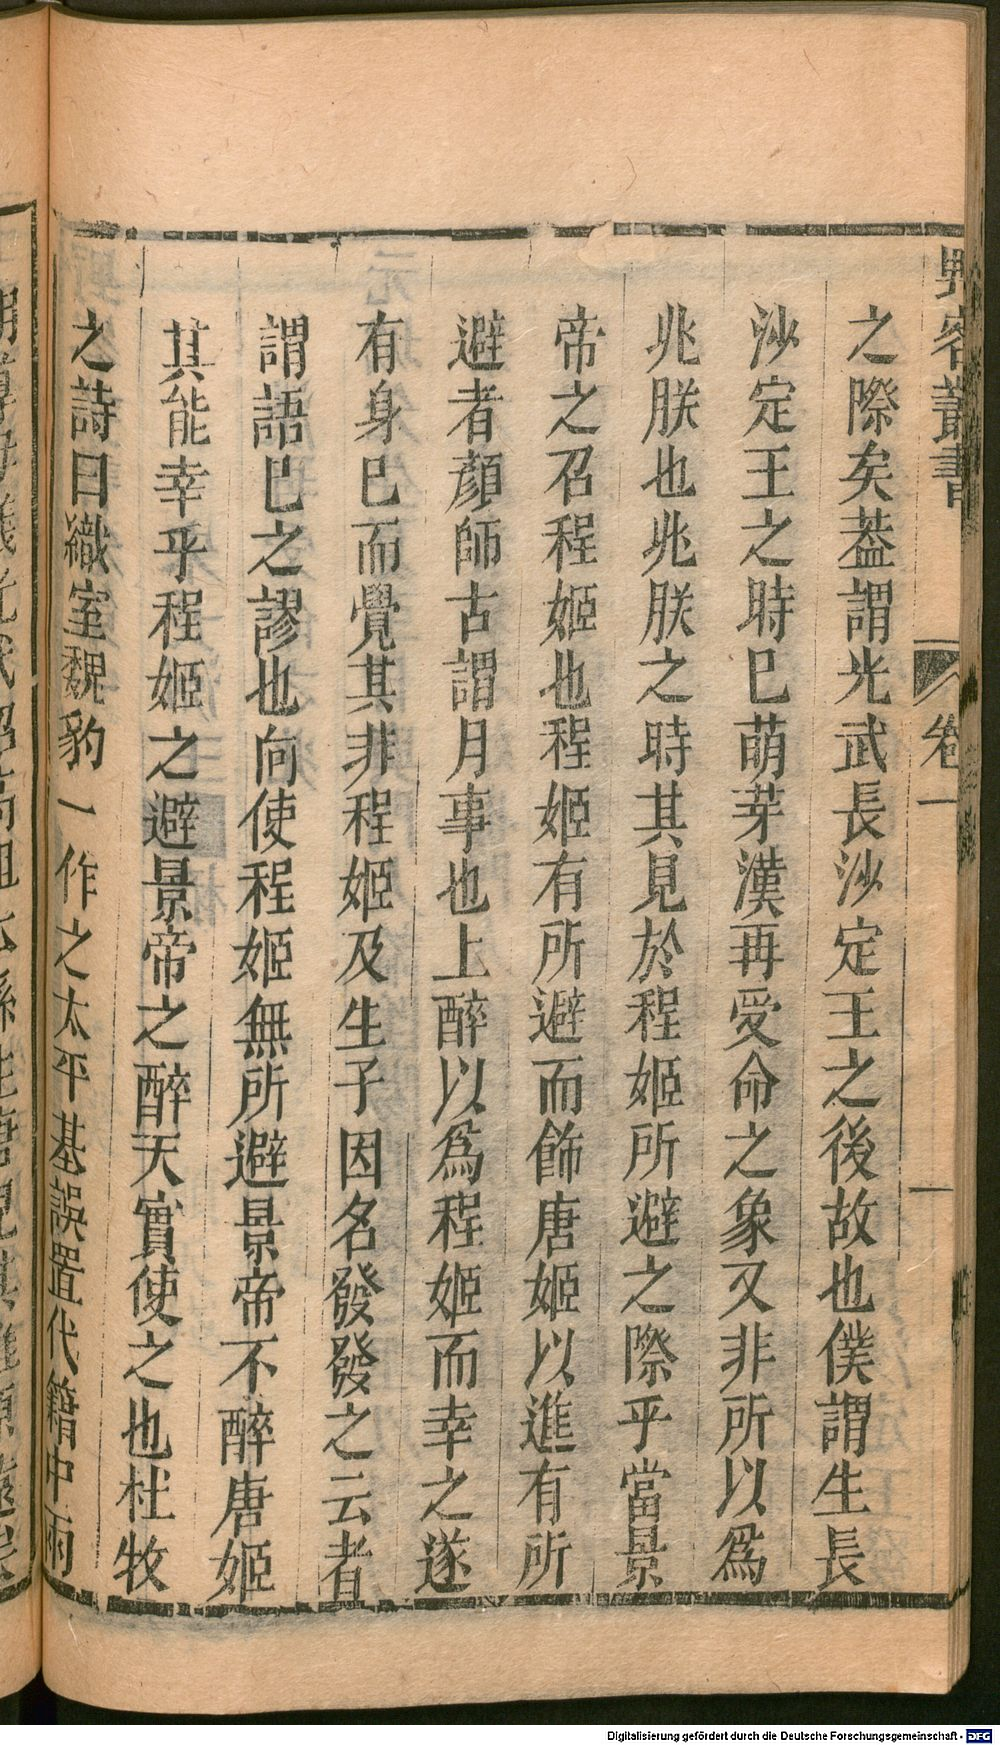 野客叢書
卷一
之際矣葢謂光武長沙定王之後故也僕謂生長
沙定王之時巳萌芽漢再受命之象又非所以爲
兆朕也兆朕之時其見於程姬所避之際乎當景
帝之召程姬也程姬有所避而飾唐姬以進有所
避者顏師古謂月事也上醉以爲程姬而幸之遂
有身巳而覺其非程姬及生子因名發發之云者
謂語巳之謬也向使程姬無所避景帝不醉唐姬
其能幸乎程姬之避景帝之醉天實使之也杜牧
之詩曰織室魏豹一作之太平基誤置代籍中兩
Digitalisierung gefördert durch die Deutsche Forschungsgemeinschaft - DFG